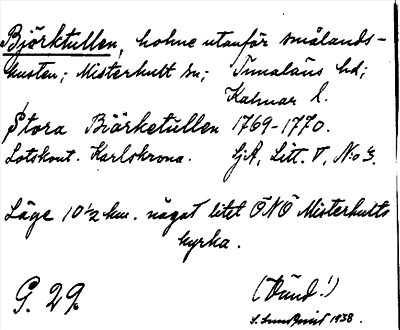 Björktullen, holme utanför smålands-
kusten; Misterhult sn; Tunaläns hd;
Kalmar l.
Stora Biörketullen 1769-1770.
Lotskont. Karlskrona. SjA, Litt. V, N:o 3.
Läge 10 1/2 km. något litet ÖNÖ Misterhults
kyrka.
G. 29. (Vänd!)
S. Sundquist 1938.